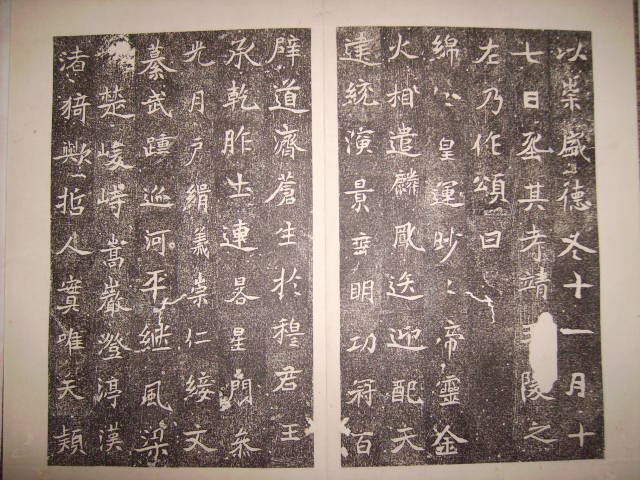 以崇盛德冬十一月十
七日窆其考靖王陵之
左乃作頌曰
綿綿皇運眇眇帝靈金
火相遣麟鳳迭迎配天
建統演景垂明功冠百
辟道濟蒼生於穆君王
承乾胙土連暑星門叅
光月戶緝義崇仁綏文
慕武蹲巡河平繼風梁
楚峻峙嵩巖澄渟漢
渚猗歟哲人寔唯天穎